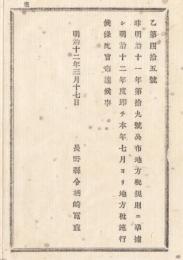 乙第四拾五號
昨明治十一年第拾九號公布地方稅規則ニ準據
シ明治十二年度卽チ本年七月ヨリ地方稅施行
候條此旨布達候事
明治十二年三月十七日
長野縣令楢崎寬直